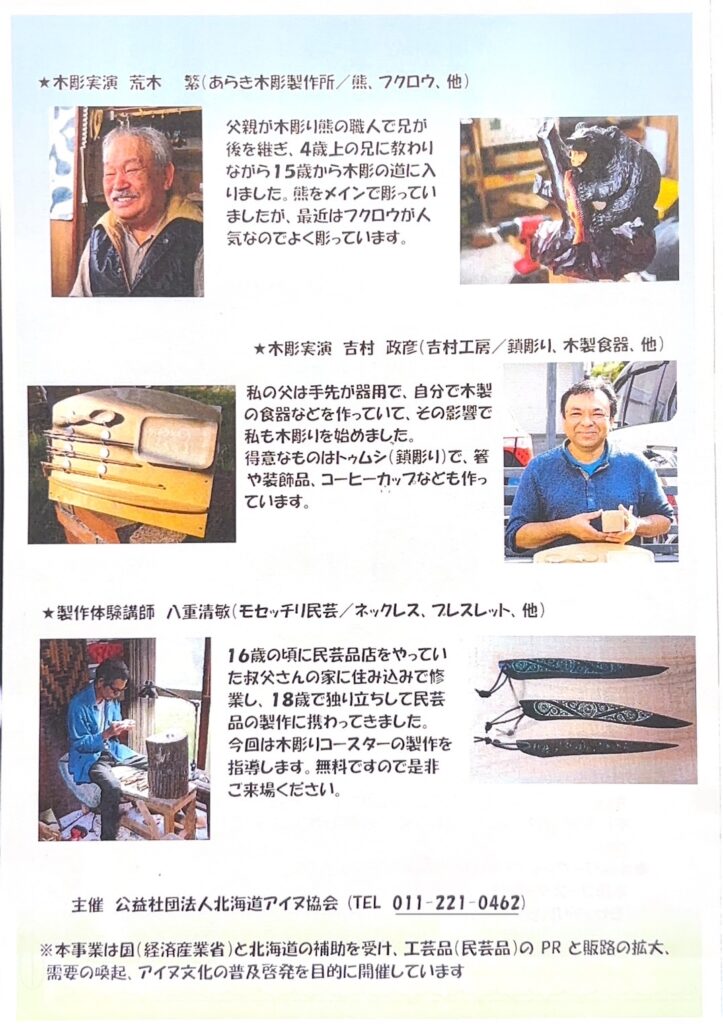 ★木彫実演 荒木 繁(あらき木彫製作所/熊、フクロウ、他)
父親が木彫り熊の職人で兄が
後を継ぎ、4歳上の兄に教わり
ながら15歳から木彫の道に入
りました。熊をメインで彫ってい
ましたが、最近はフクロウが人
気なのでよく彫っています。
★木彫実演 吉村 政彦(吉村工房/鎖彫り、木製食器、他)
私の父は手先が器用で、自分で木製
の食器などを作っていて、その影響で
私も木彫りを始めました。
得意なものはトゥムシ(鎖彫り)で、箸
や装飾品、コーヒーカップなども作っ
ています。
★製作体験講師 八重清敏(モセッチリ民芸/ネックレス、ブレスレット、他)
16歳の頃に民芸品店をやってい
た叔父さんの家に住み込みで修
業し、18歳で独り立ちして民芸
品の製作に携わってきました。
今回は木彫りコースターの製作を
指導します。無料ですので是非
ご来場ください。
主催 公益社団法人北海道アイヌ協会 (TEL 011-221-0462)
※本事業は国(経済産業省)と北海道の補助を受け、工芸品(民芸品)の PR と販路の拡大、
需要の喚起、アイヌ文化の普及啓発を目的に開催しています